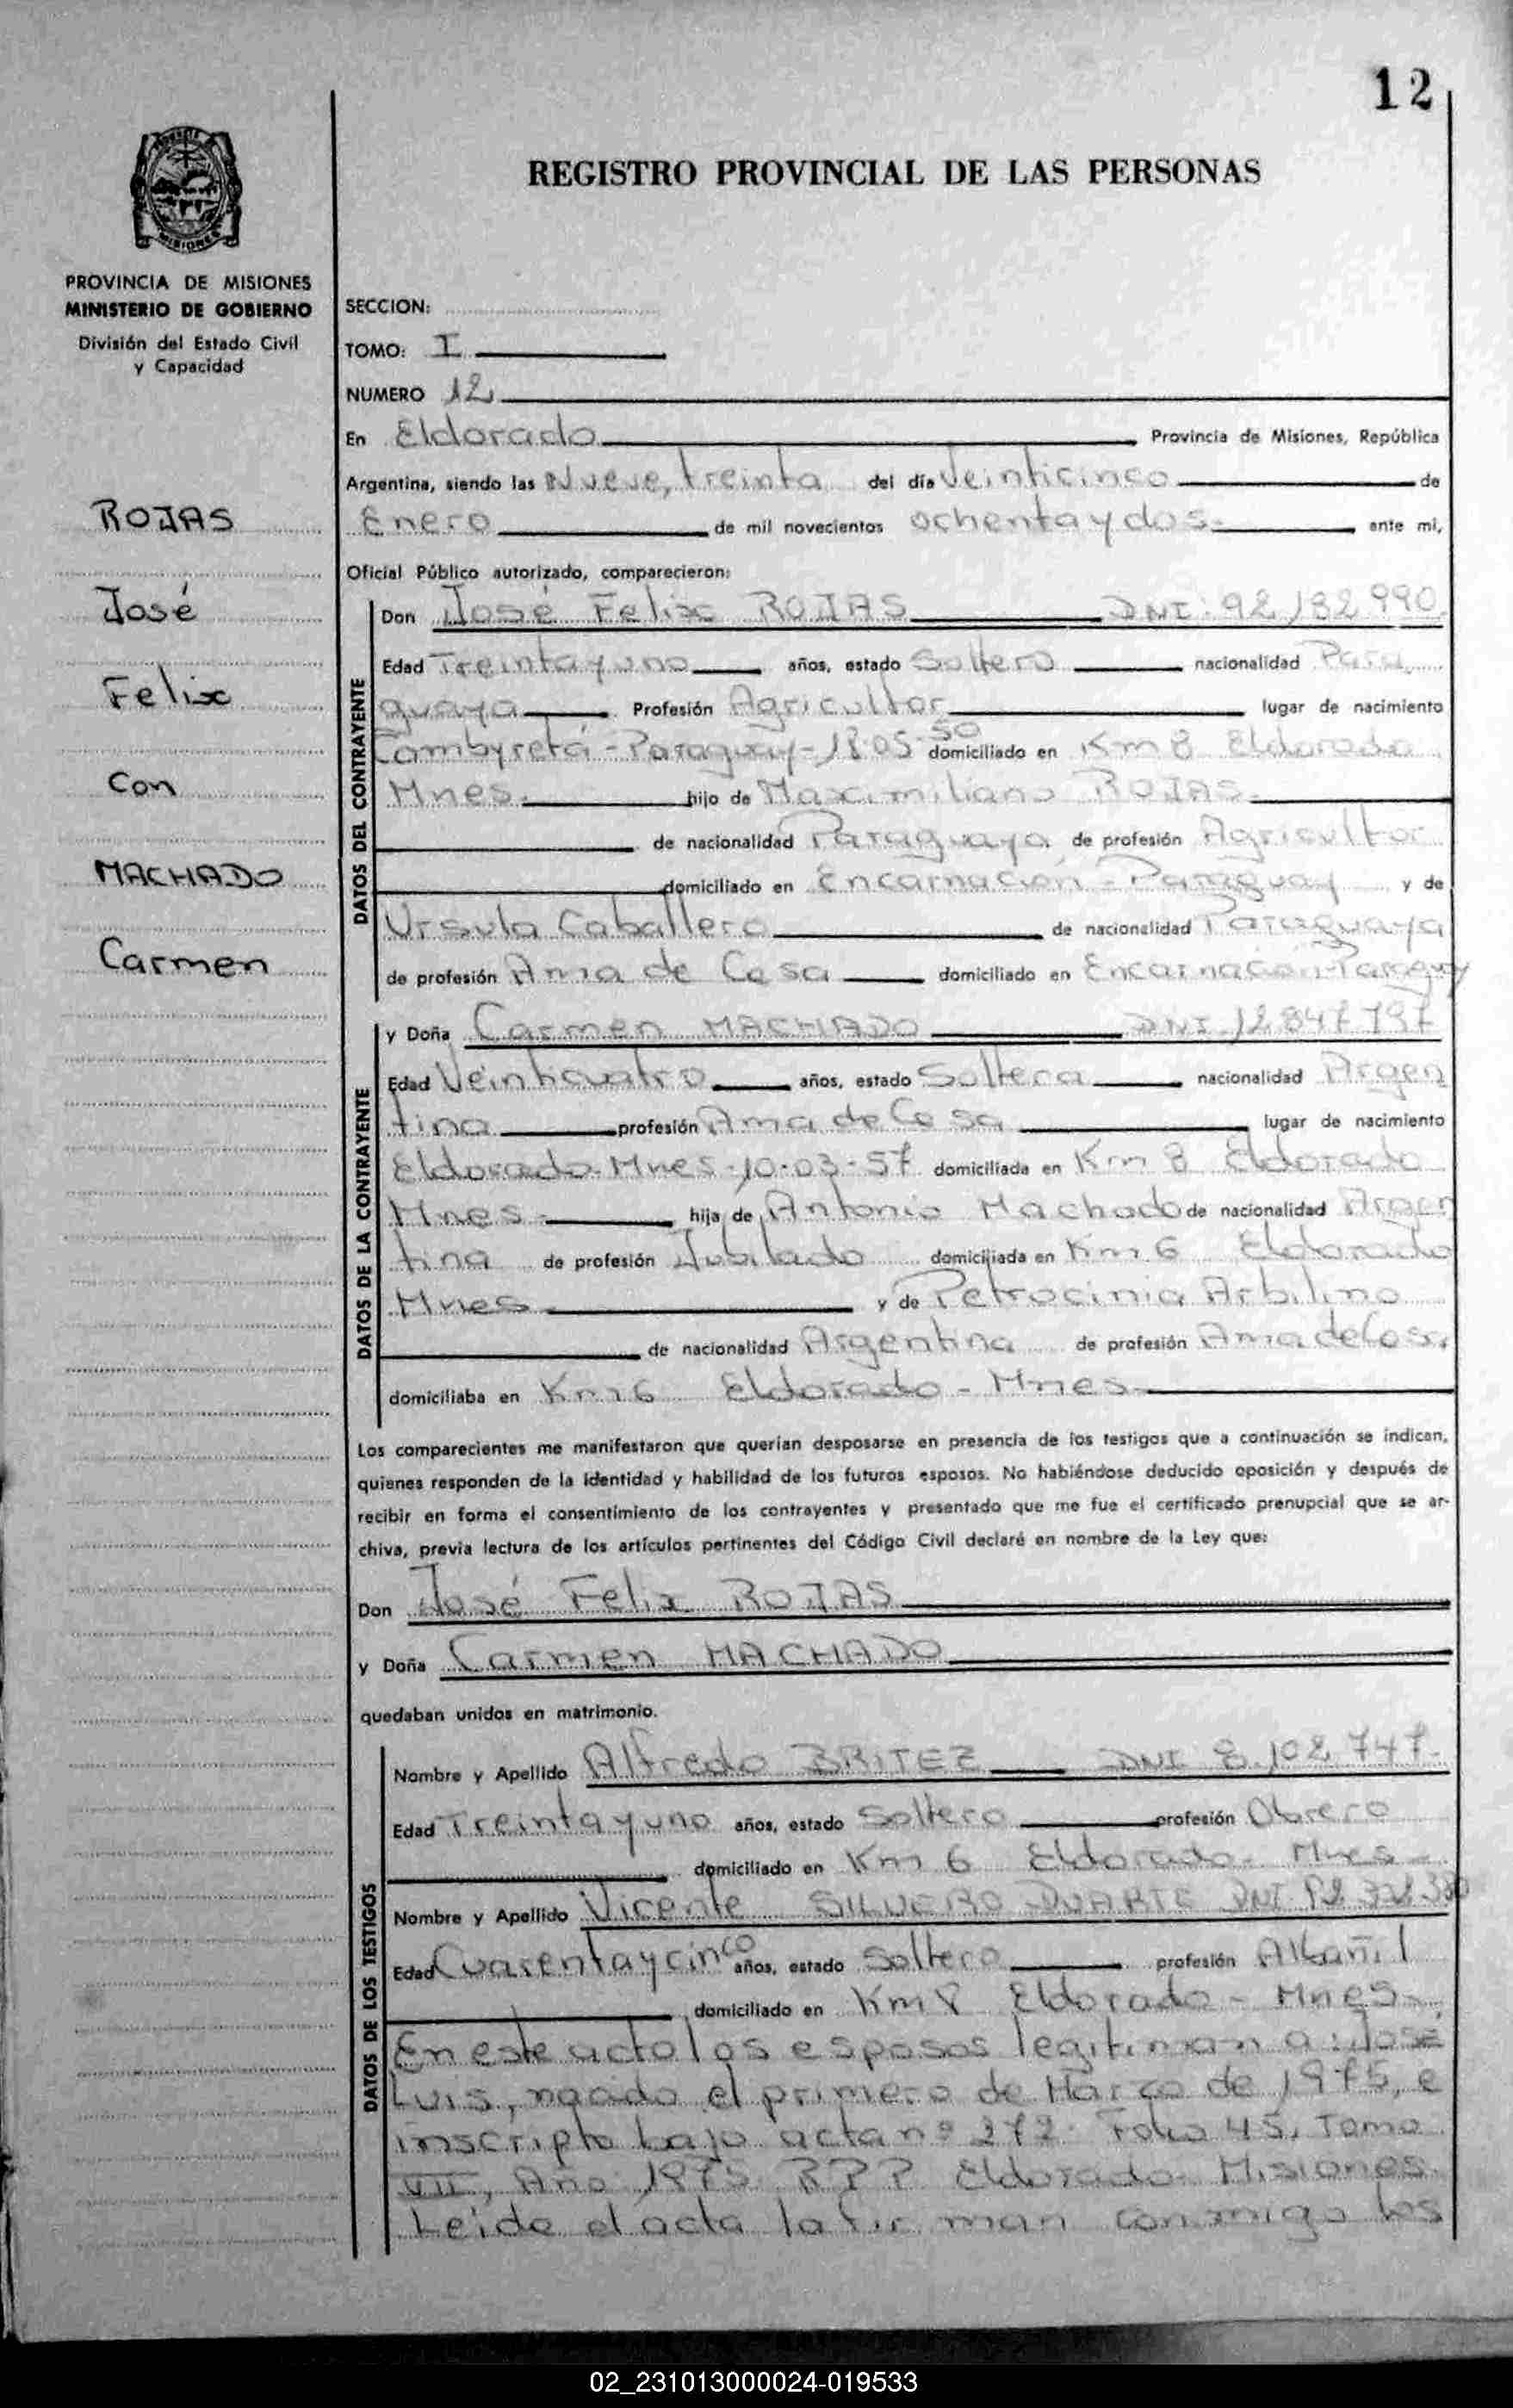 12
REGISTRO PROVINCIAL DE LAS PERSONAS
MISIONES
PROVINCIA DE MISIONES
MINISTERIO DE GOBIERNO
División del Estado Civil
y Capacidad
ROJAS
José
Felix
Con
MACHADO
Carmen
SECCION:
TOMO: I
NUMERO 12
En Eldorado Provincia de Misiones, República
Argentina, siendo las Nueve, treinta del día Veinticinco de
Enero de mil novecientos ochenta y dos- ante mi,
Oficial Público autorizado, comparecieron:
DATOS DEL CONTRAYENTE
Don José Felix ROJAS DNI: 92,182 990
Edad Treinta y uno años, estado Soltero nacionalidad Para
guaya Profesión Agricultor lugar de nacimiento
Cambyretá - Paraguay - 18.05 50 domiciliado en Km 8 Eldorado
Mnes. hijo de Maximiliano ROJAS.
de nacionalidad Paraguaya de profesión Agricultor
domiciliado en Encarnación - Paraguay y de
Ursula Caballero de nacionalidad Paraguaya
de profesión Ama de Casa domiciliado en Encarnación-Paraguay
DATOS DE LA CONTRAYENTE
y Doña Carmen MACHADO DNI 12 847 797
Edad Veinticuatro años, estado Soltera nacionalidad Argen
tina profesión Ama de Casa lugar de nacimiento
Eldorado. Mnes - 10-03-57 domiciliada en Km 8 Eldorado
Mnes - hija de Antonio Machado de nacionalidad Argen
tina de profesión Jubilado domiciliada en Km 6 Eldorado
Mnes y de Petrocinia Arbilino
de nacionalidad Argentina de profesión Ama de Casa
domiciliaba en Km 6 Eldorado - Mnes
Los comparecientes me manifestaron que querían desposarse en presencia de los testigos que a continuación se indican,
quienes responden de la identidad y habilidad de los futuros esposos. No habiéndose deducido oposición y después de
recibir en forma el consentimiento de los contrayentes y presentado que me fue el certificado prenupcial que se ar-
chiva, previa lectura de los artículos pertinentes del Código Civil declaré en nombre de la Ley que:
Don José Felix ROJAS
y Doña Carmen MACHADO
quedaban unidos en matrimonio.
DATOS DE LOS TESTIGOS
Nombre y Apellido Alfredo BRITEZ DNI 8.102 747-
Edad Treinta y uno años, estado Soltero profesión Obrero
domiciliado en Km 6 Eldorado - Mnes -
Nombre y Apellido Vicente SILVERO DUARTE DNI
Edad Cuarenta y cinco años, estado Soltero profesión Albañil
domiciliado en Km 8 Eldorado - Mnes-
En este acto los esposos legitiman a: José
Luis, nacido el primero de Marzo de 1975, e
inscripto bajo acta nº 272 Folio 45, Tomo
VII, Año 1975 RPP Eldorado- Misiones
Leida el acta la firman conmigo los
02_231013000024-019533